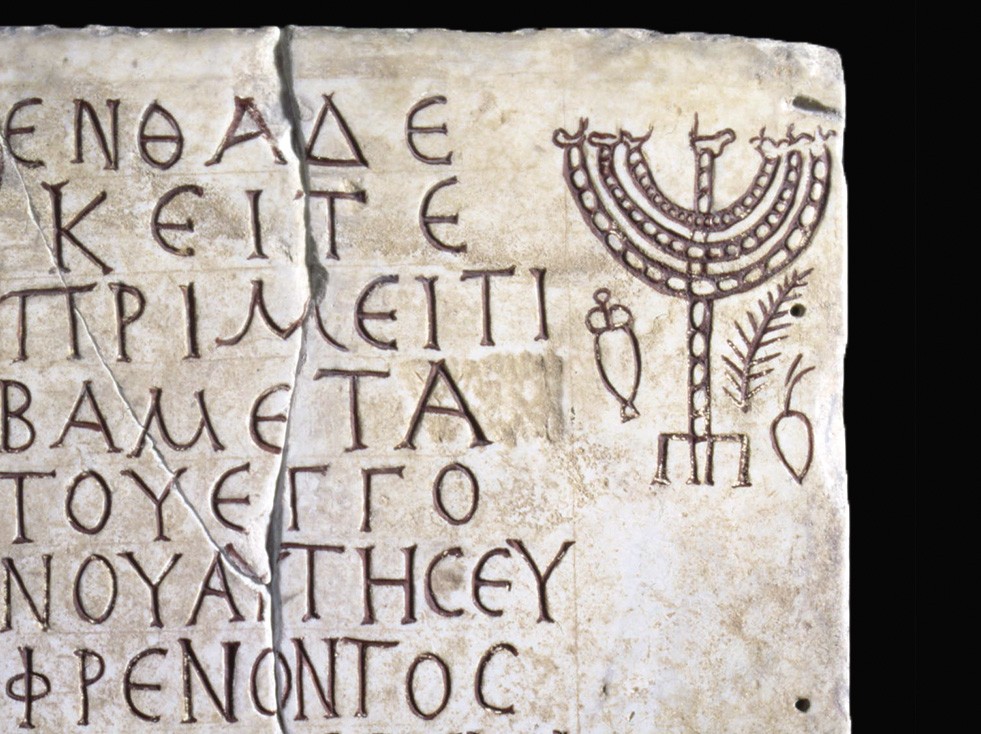 ΕΝΘΑΔΕ
ΚΕΙΤΕ
ΠΡΙΜΕΙΤΙ
ΒΑΜΕΤΑ
ΤΟΥΕΓΓΟ
ΝΟΥΑΥΤΗϹΕΥ
ΦΡΕΝΟΝΤΟϹ